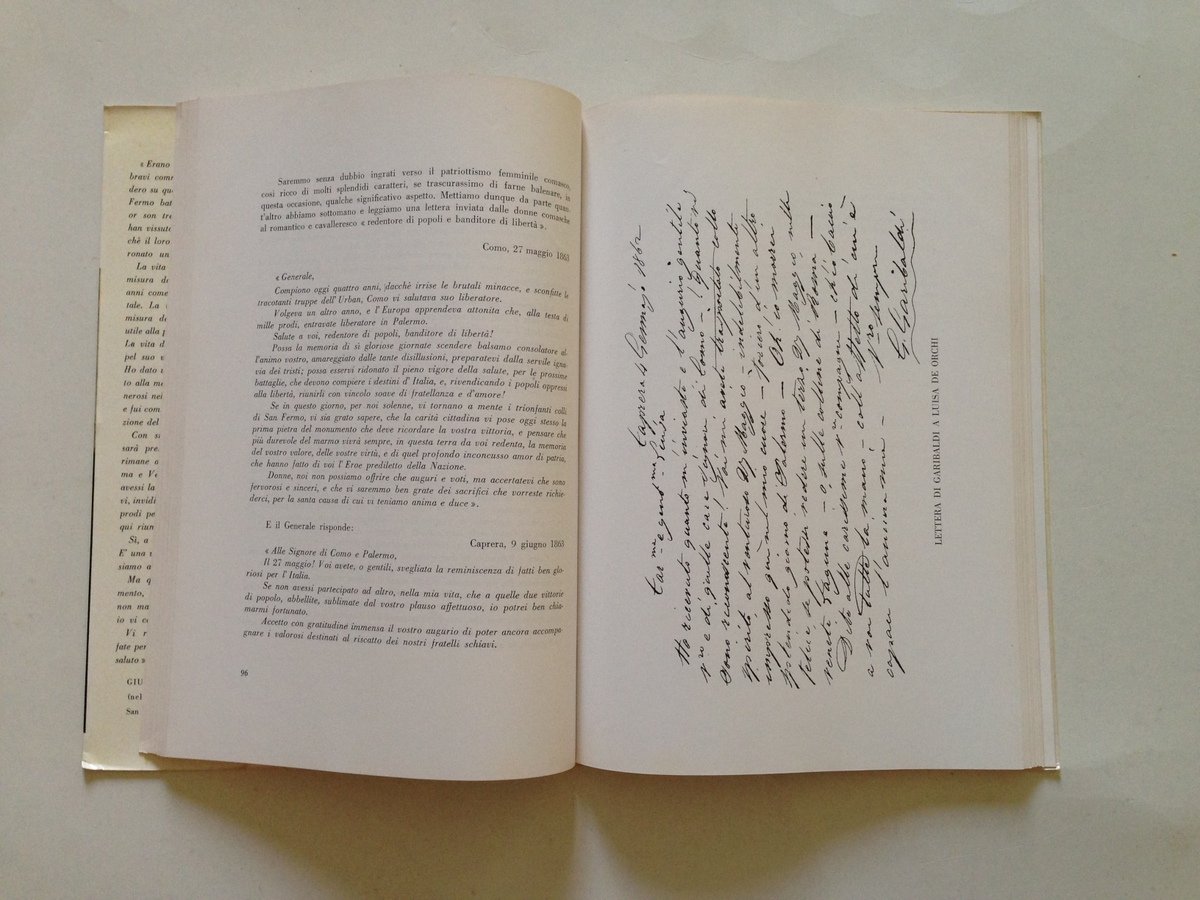 « Erano
bravi com
dero su qu
Fermo bat
or son tre
han vissut
chè il loro
ronato un
La vita
misura de
anni come
tale. La
misura de
utile alla p
La vita d
pel suo v
Ho dato
to alla me
nerosi nei
e fui com
zione del
Con s
sarà pre
rimane a
ma e V
avessi la
vi, invidi
prodi pe
qui riun
Sì, a
E' una
siamo a
Ma q
mento,
non ma
io vi co
Vi r
fate per
saluto »
GIU
(nel
San
Saremmo senza dubbio ingrati verso il patriottismo femminile comasco,
così ricco di molti splendidi caratteri, se trascurassimo di farne balenare, in
questa occasione, qualche significativo aspetto. Mettiamo dunque da parte quan-
t'altro abbiamo sottomano e leggiamo una lettera inviata dalle donne comasche
al romantico e cavalleresco « redentore di popoli e banditore di libertà ».
Como, 27 maggio 1863
« Generale,
Compiono oggi quattro anni, dacchè irrise le brutali minacce, e sconfitte le
tracotanti truppe dell'Urban, Como vi salutava suo liberatore.
Volgeva un altro anno, e l'Europa apprendeva attonita che, alla testa di
mille prodi, entravate liberatore in Palermo.
Salute a voi, redentore di popoli, banditore di libertà!
Possa la memoria di sì gloriose giornate scendere balsamo consolatore al-
l'animo vostro, amareggiato dalle tante disillusioni, preparatevi dalla servile igna-
via dei tristi; possa esservi ridonato il pieno vigore della salute, per le prossime
battaglie, che devono compiere i destini d' Italia, e, rivendicando i popoli oppressi
alla libertà, riunirli con vincolo soave di fratellanza e d'amore!
Se in questo giorno, per noi solenne, vi tornano a mente i trionfanti colli
di San Fermo, vi sia grato sapere, che la carità cittadina vi pose oggi stesso la
prima pietra del monumento che deve ricordare la vostra vittoria, e pensare che
più durevole del marmo vivrà sempre, in questa terra da voi redenta, la memoria
del vostro valore, delle vostre virtù, e di quel profondo inconcusso amor di patria,
che hanno fatto di voi l' Eroe prediletto della Nazione.
Donne, noi non possiamo offrire che auguri e voti, ma accertatevi che sono
fervorosi e sinceri, e che vi saremmo ben grate dei sacrifici che vorreste richie-
derci, per la santa causa di cui vi teniamo anima e duce ».
E il Generale risponde:
Caprera, 9 giugno 1863
« Alle Signore di Como e Palermo,
Il 27 maggio! Voi avete, o gentili, svegliata la reminiscenza di fatti ben glo-
riosi per l' Italia.
Se non avessi partecipato ad altro, nella mia vita, che a quelle due vittorie
di popolo, abbellite, sublimate dal vostro plauso affettuoso, io potrei ben chia-
marmi fortunato.
Accetto con gratitudine immensa il vostro augurio di poter ancora accompa-
gnare i valorosi destinati al riscatto dei nostri fratelli schiavi.
96
Caprera 4 Gennajo 1862
Car.ma e gent.ma Luisa
Ho ricevuto quanto m'inviaste e l'augurio gentile
vro e di quelle care Signore di Como! Quanto vi
sono riconoscente! Voi mi avete trasportato collo
spirito al venturoso 27 Maggio - indelibilmente
impresso quì nel mio cuore - foriero d'un altro
splendido giorno di Palermo - Oh! io morrei
felice se potessi vedere un terzo 27 Maggio nella
veneta laguna - o sulle colline di Roma -
Dite alle carissime v.e compagne - ch'io bacio
a voi tutte la mano - coll'affetto di cui è
capace l'anima mia -
v.ro sempre
G. Garibaldi
LETTERA DI GARIBALDI A LUISA DE ORCHI